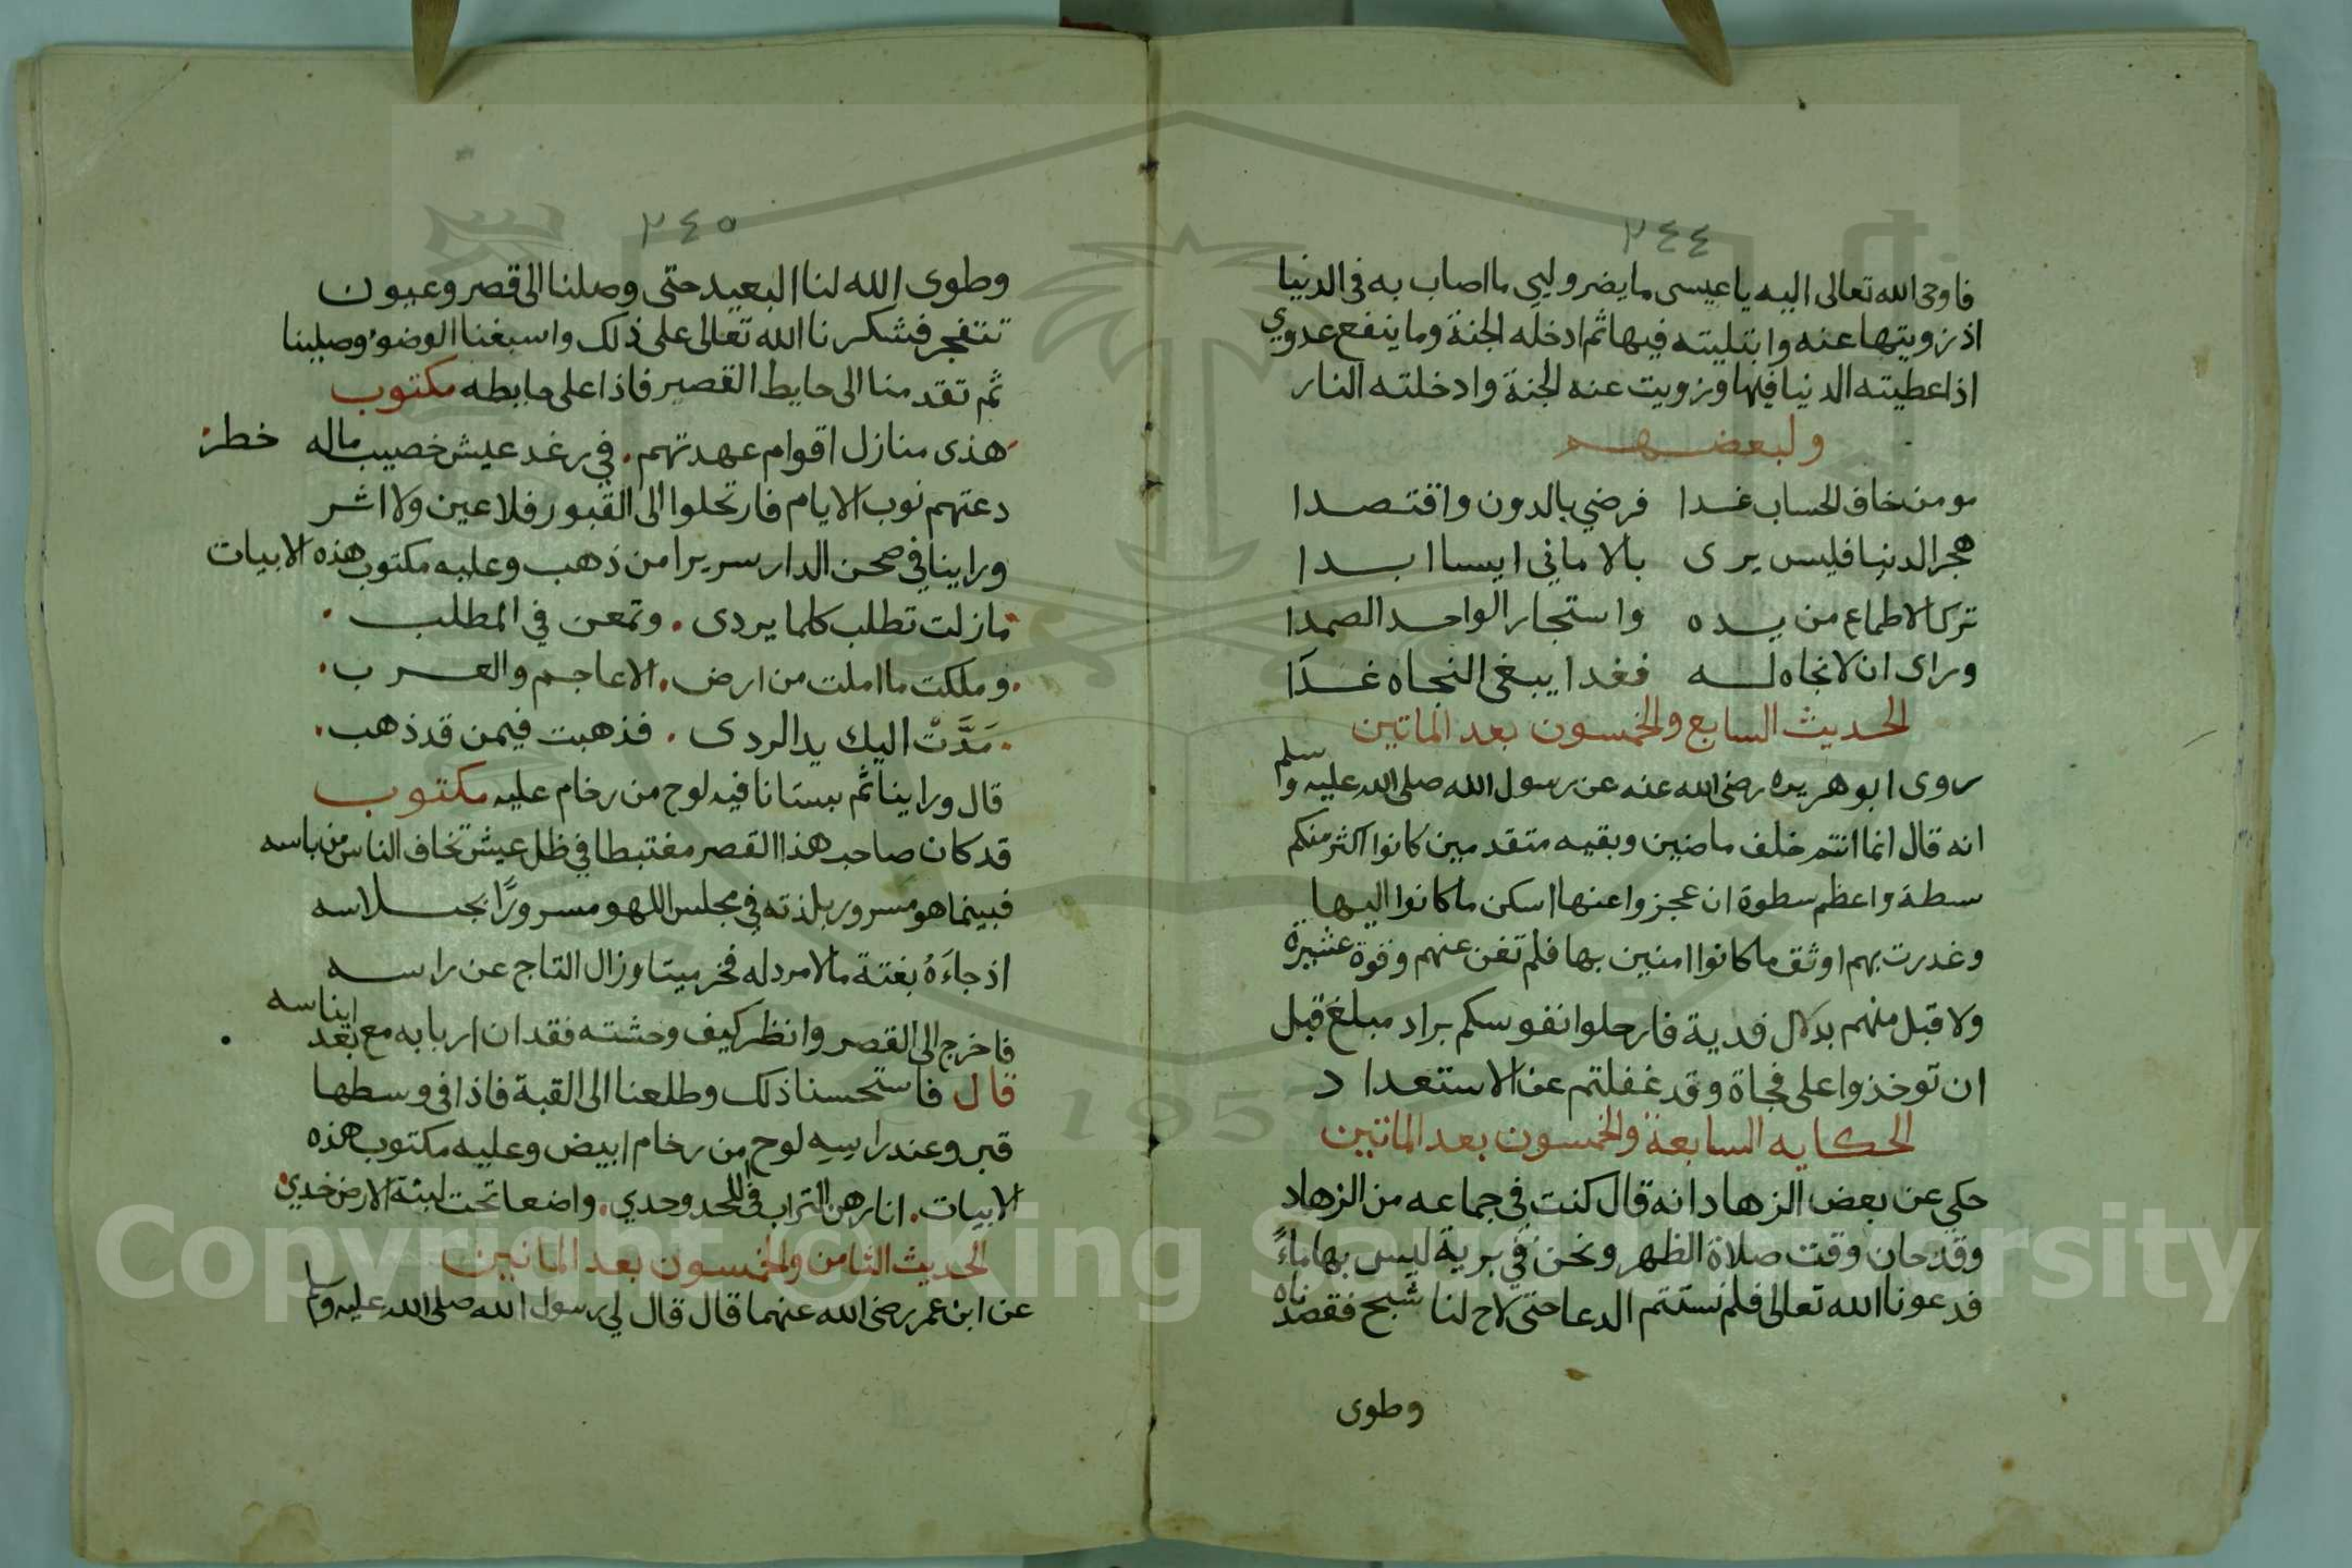 ٢٤٤
فاوحى الله تعالى اليه يا عيسى ما يضر وليي ما اصاب به في الدنيا
اذ زويتها عنه وابتليته فيها ثم ادخله الجنة وما ينفع عدوي
اذا عطيته الدنيا فيها وزويت عنه الجنة وادخلته النار
ولبعضهم
مومن خاف الحساب غدا فرضي بالدون واقتصدا
هجر الدنيا فليس يرى بالاماني ايسا ابدا
ترك الاطماع من يده واستجار الواحد الصمدا
وراى ان لا نجاه له فغدا يبغي النجاه غدا
الحديث السابع والخمسون بعد الماتين
روى ابو هريره رضى الله عنه عن رسول الله صلى الله عليه وسلم
انه قال انما انتم خلف ماضين وبقيه متقدمين كانوا اكثر منكم
سطة واعظم سطوة ان عجزوا عنها اسكن ما كانوا اليها
وغدرت بهم اوثق ما كانوا امنين بها فلم تغن عنهم وقوة عشيرة
ولا قبل منهم بدلال فدية فارحلوا نفوسكم براد مبلغ قبل
ان توخذوا على فجاة وقد غفلتم عن الاستعداد
الحكايه السابعة والخمسون بعد الماتين
حكى عن بعض الزهاد انه قال كنت في جماعه من الزهاد
وقد حان وقت صلاة الظهر ونحن في برية ليس بها ماءً
فدعونا الله تعالى فلم نستتم الدعا حتى لاح لنا شبح فقصدناه
وطوى
٢٤٥
وطوى الله لنا البعيد حتى وصلنا الى قصر وعيون
تتفجر فشكرنا الله تعالى على ذلك واسبغنا الوضوء وصلينا
ثم تقدمنا الى حايط القصر فاذا على حايطه مكتوب
هذى منازل اقوام عهدتهم في رغد عيش خصيب ماله خطر
دعتهم نوب الايام فارتحلوا الى القبور فلا عين ولا اثر
وراينا في صحن الدار سريرا من ذهب وعليه مكتوب هذه الابيات
مازلت تطلب كلما يردى . وتمعن في المطلب .
. وملكت ما املت من ارض . الاعاجم والعرب .
. مَدَّتْ اليك يد الردى . فذهبت فيمن قد ذهب .
قال وراينا ثم بستانا فيه لوح من رخام عليه مكتوب
قد كان صاحب هذا القصر مغتبطا في ظل عيش تخاف الناس من باسه
فبينما هو مسرور بلذته في مجلس اللهو مسرورًا بجلاسه
اذ جاءَهُ بغتة ما لا مرد له فخر ميتا وزال التاج عن راسه
فاخرج الى القصر وانظر كيف وحشته فقدان اربابه مع بعد ايناسه
قال فاستحسنا ذلك وطلعنا الى القبة فاذا في وسطها
قبر وعند راسه لوح من رخام ابيض وعليه مكتوب هذه
الابيات . انا رهن التراب في اللحد وحدي . واضعا تحت لبنة الارض خدي
الحديث الثامن والخمسون بعد الماتين
عن ابن عمر رضى الله عنهما قال قال لي رسول الله صلى الله عليه وسلم
1957
Copyright © King Saud University